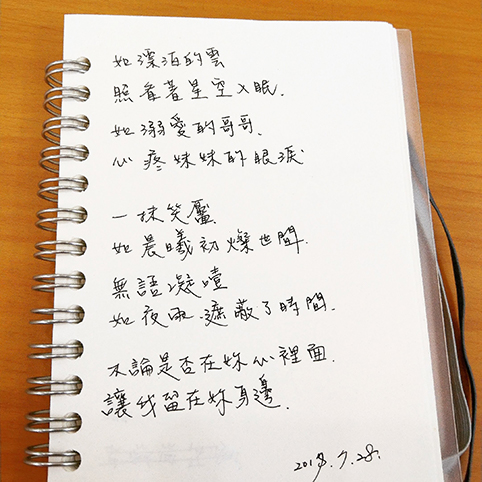 如漂泊的雲
照看著星空入眠.
如溺愛的哥哥.
心疼妹妹的眼淚
一抹笑靨
如晨曦初燦世間.
無語凝噎
如夜雨.遮蔽了時間.
不論是否在妳心裡面.
讓我留在妳身邊.
2018.7.28.